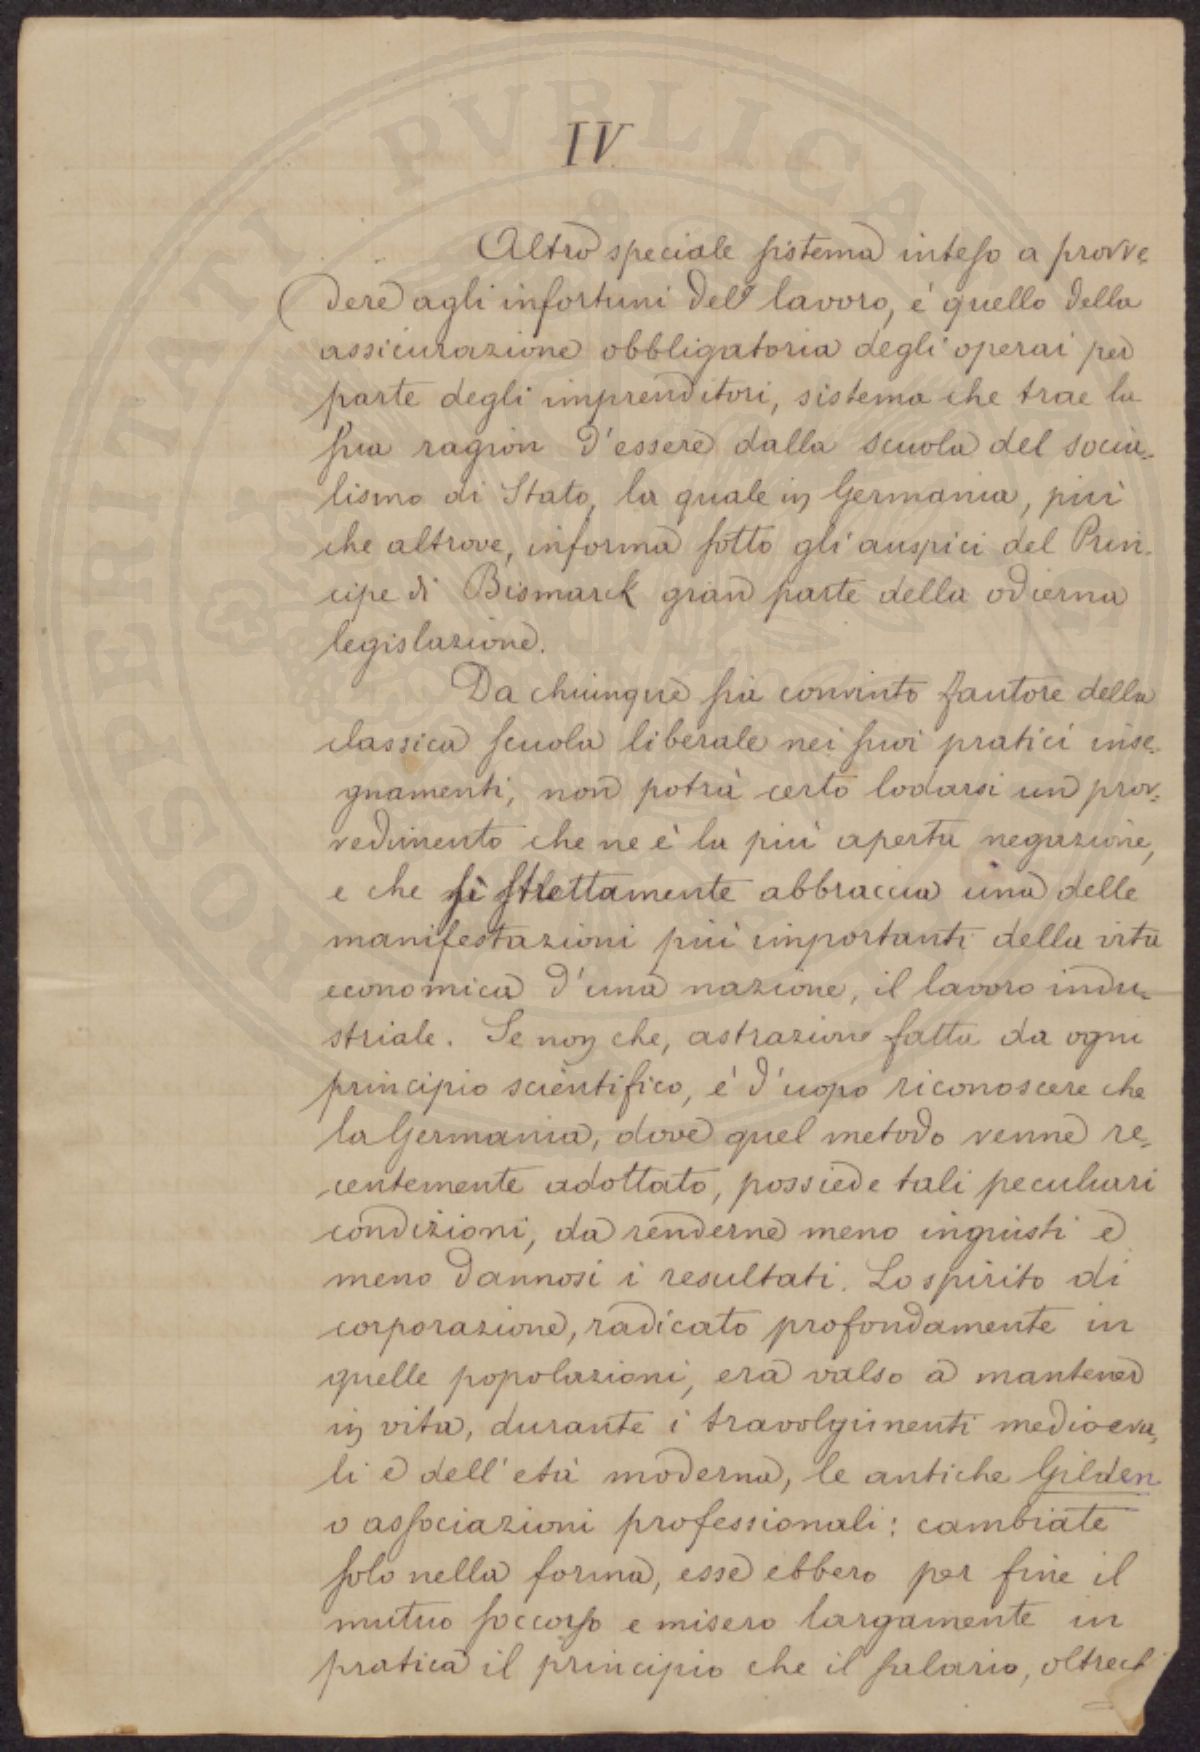 PROSPERITATI PVBLICAE
IV
Altro speciale sistema inteso a provve-
dere agli infortuni del lavoro, è quello della
assicurazione obbligatoria degli operai per
parte degli imprenditori, sistema che trae la
sua ragion d'essere dalla scuola del socia-
lismo di Stato, la quale in Germania, più
che altrove, informa sotto gli auspici del Prin-
cipe di Bismarck gran parte della odierna
legislazione.
Da chiunque sia convinto fautore della
classica scuola liberale nei suoi pratici inse-
gnamenti, non potrà certo lodarsi un prov-
vedimento che ne è la più aperta negazione,
e che sì strettamente abbraccia una delle
manifestazioni più importanti della vita
economica d'una nazione, il lavoro indu-
striale. Se non che, astrazione fatta da ogni
principio scientifico, è d'uopo riconoscere che
la Germania, dove quel metodo venne re-
centemente adottato, possiede tali peculiari
condizioni, da renderne meno ingiusti e
meno dannosi i resultati. Lo spirito di
corporazione, radicato profondamente in
quelle popolazioni, era valso a mantener
in vita, durante i travolgimenti medioeva-
li e dell'età moderna, le antiche Gilden
o associazioni professionali: cambiate
solo nella forma, esse ebbero per fine il
mutuo soccorso e misero largamente in
pratica il principio che il salario, oltrech